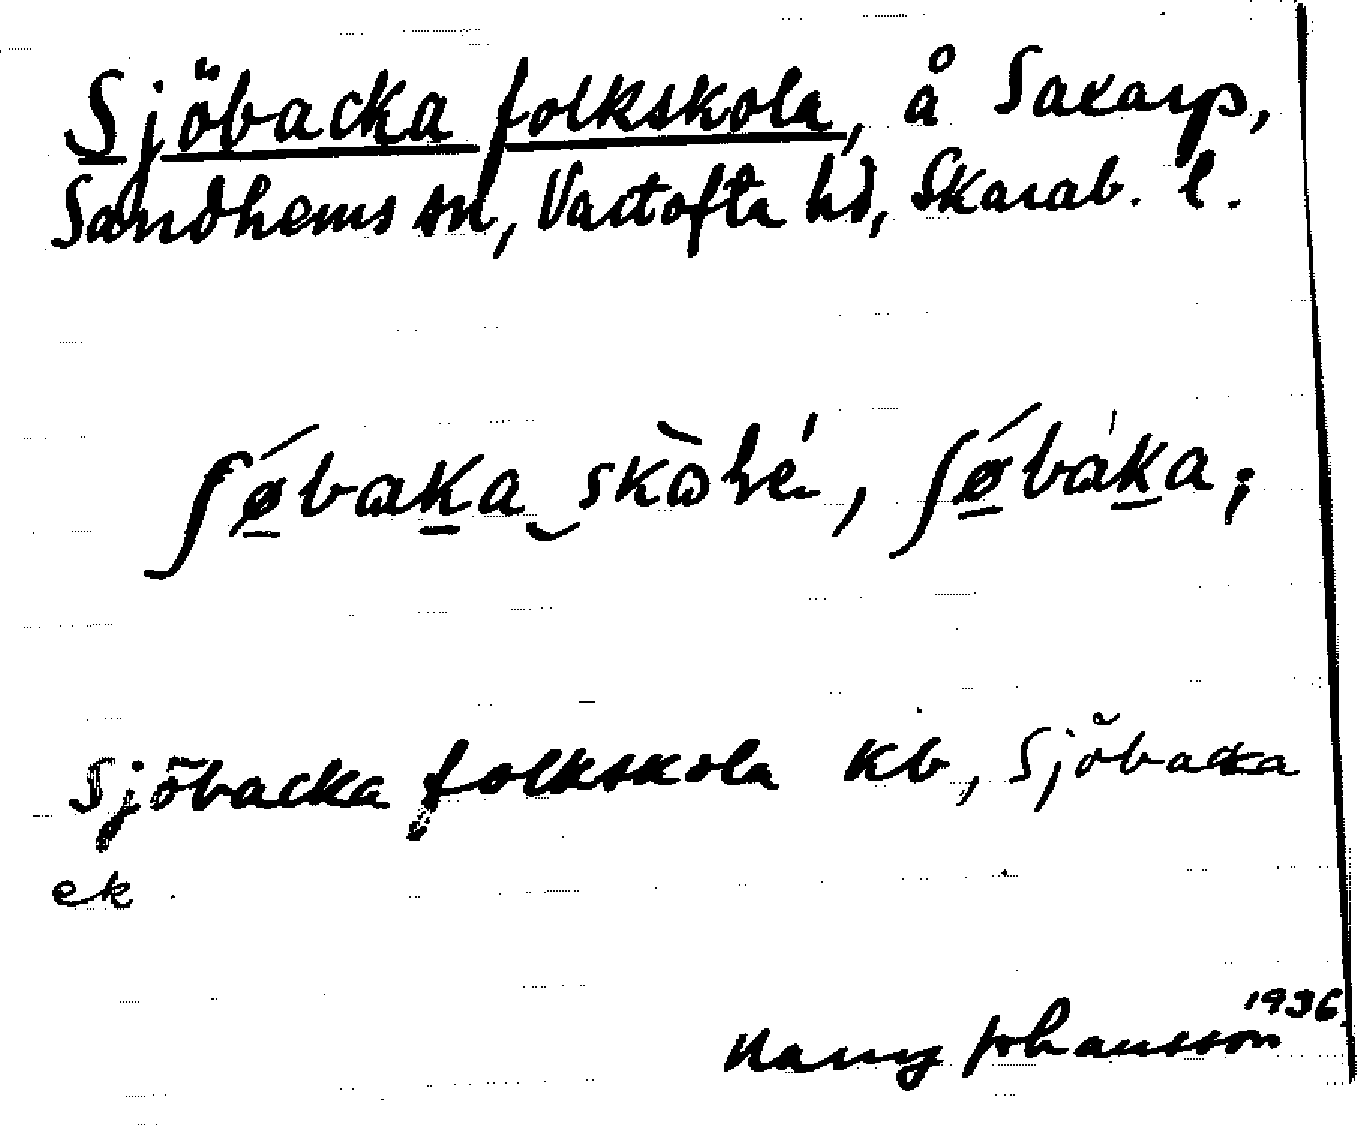 Sjöbacka folkskola, å Saxarp,
Sandhems sn, Vartofta hd, Skarab. l.
ʃøbaka skole, ʃøbaka;
Sjöbacka folkskola kb, Sjöbacka
ek.
1936.
Harry Johansson